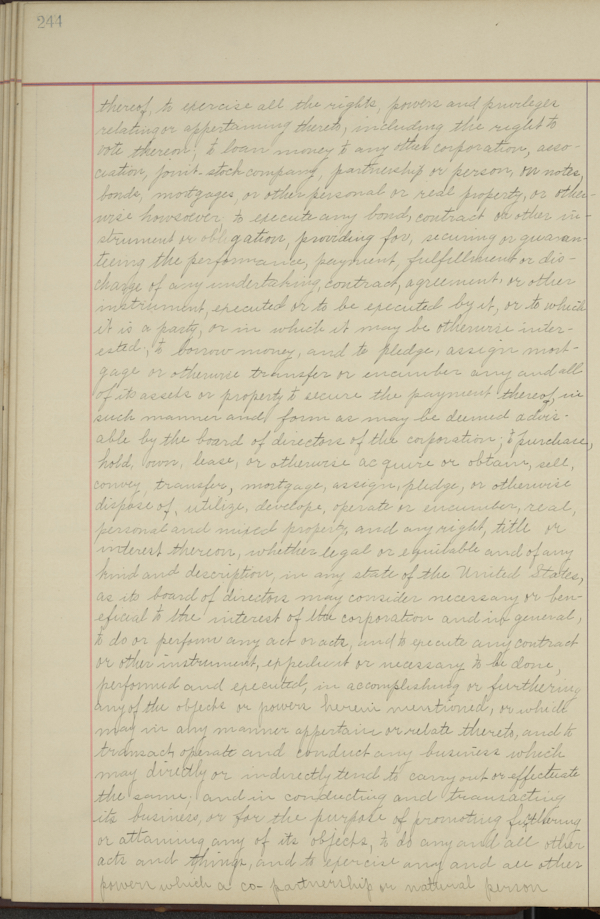 244
thereof, to exercise all the rights, powers and privileges
relating or appertaining thereto, including the right to
vote thereon; to loan money to any other corporation, asso-
ciation, joint-stock company, partnership or person, on notes,
bonds, mortgages, or other personal or real property, or other-
wise howsoever, to execute any bond, contract or other in-
strument or obligation, providing for, securing or guaran-
teeing the performance, payment, fulfillment or dis-
charge of any undertaking, contract, agreement, or other
instrument, executed or to be executed by it, or to which
it is a party, or in which it may be otherwise inter-
ested; to borrow money, and to pledge, assign mort-
gage or otherwise transfer or encumber any and all
of its assets or property to secure the payment thereof, in
such manner and form as may be deemed advis-
able by the board of directors of the corporation; to purchase,
hold, own, lease, or otherwise acquire or obtain, sell,
convey, transfer, mortgage, assign, pledge, or otherwise
dispose of, utilize, develope, operate or encumber, real,
personal and mixed property, and any right, title or
interest thereon, whether legal or equitable and of any
kind and description, in any state of the United States,
as its board of directors may consider necessary or ben-
eficial to the interest of the corporation and in general,
to do or perform any act or acts, and to execute any contract
or other instrument, expedient or necessary to be done,
performed and executed, in accomplishing or furthering
any of the objects or powers herein mentioned, or which
may in any manner appertain or relate thereto, and to
transact, operate and conduct any business which
may directly or indirectly tend to carry out or effectuate
the same; and in conducting and transacting
its business, or for the purpose of promoting furthering
or attaining any of its objects, to do any and all other
acts and things, and to exercise any and all other
powers which a co-partnership or natural person